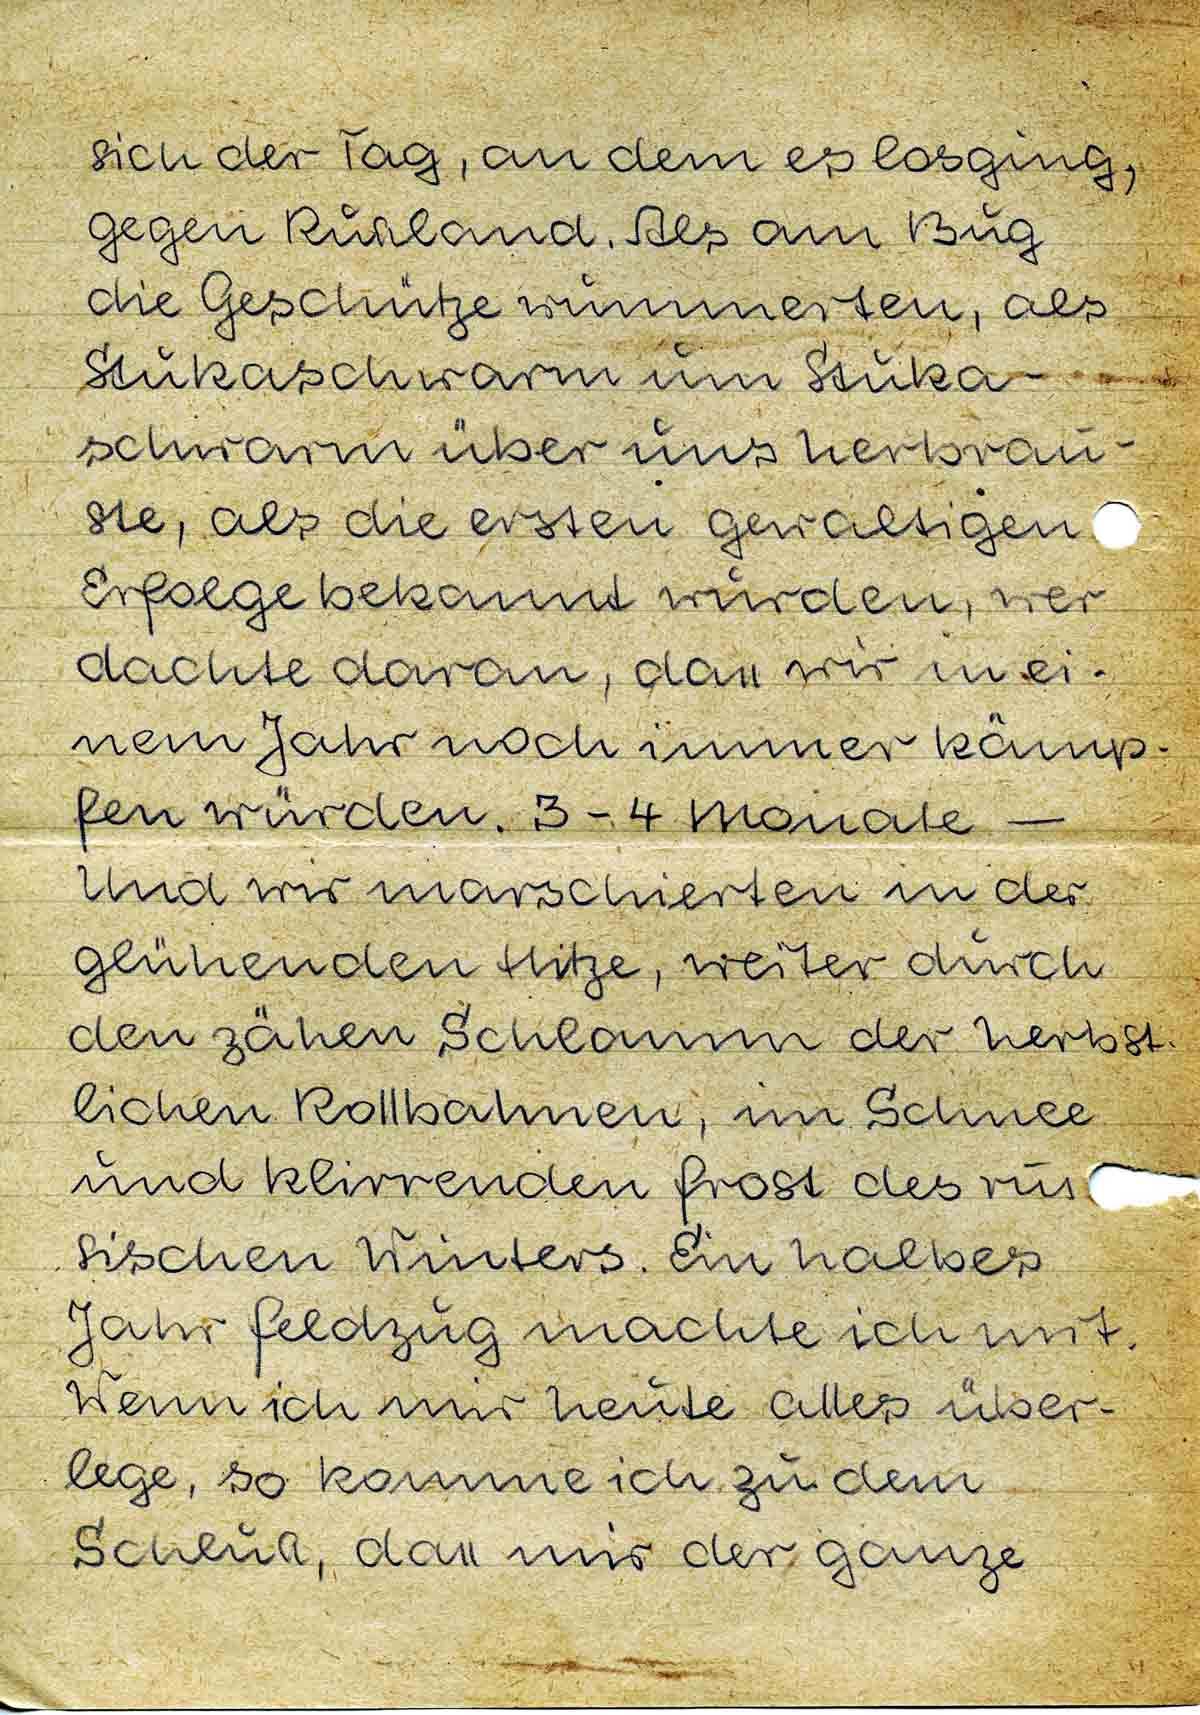 sich der Tag, an dem es losging,
gegen Rußland. Als am Bug
die Geschütze wummerten, als
Stukaschwarm um Stuka-
schwarm über uns herbrau-
ste, als die ersten gewaltigen
Erfolge bekannt wurden, wer
dachte daran, daß wir in ei-
nem Jahr noch immer kämp-
fen würden. 3-4 Monate —
Und wir marschierten in der
glühenden Hitze, weiter durch
den zähen Schlamm der herbst-
lichen Rollbahnen, im Schnee
und klirrenden Frost des rus
sischen Winters. Ein halbes
Jahr Feldzug machte ich mit.
Wenn ich mir heute alles über-
lege, so komme ich zu dem
Schluß, daß mir der ganze